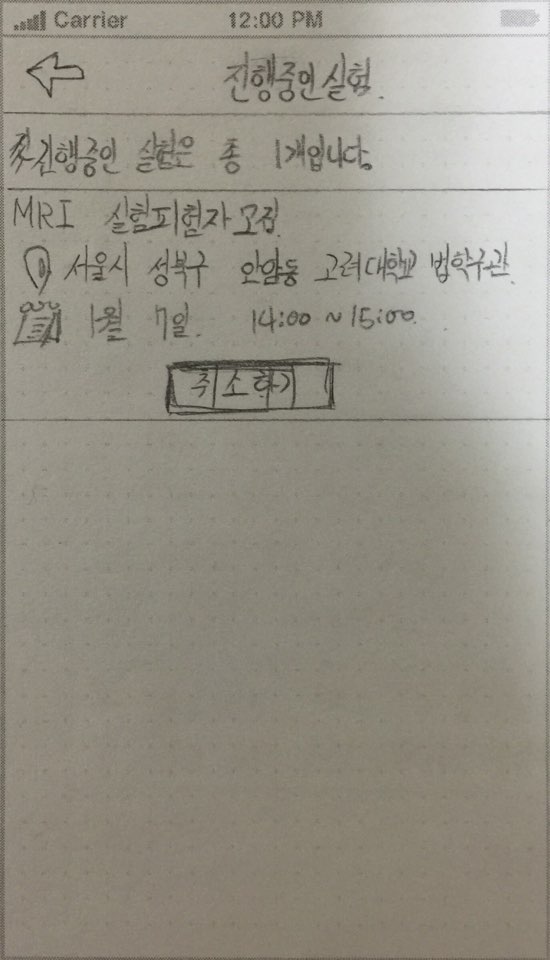 Carrier 12:00 PM
진행중인실험.
진행중인 실험은 총 1개입니다.
MRI 실험피험자 모집.
서울시 성북구 안암동 고려대학교 법학구관.
1월 7일. 14:00 ~ 15:00.
취소하기